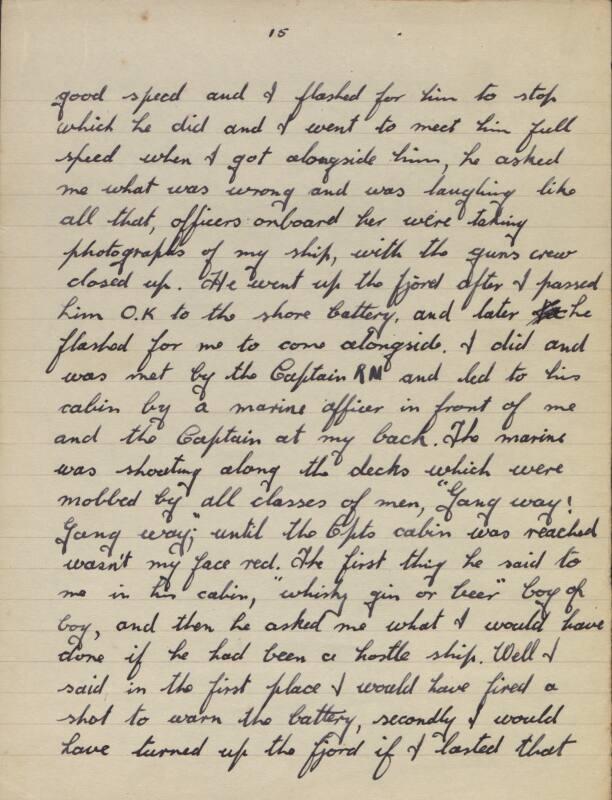 15
good speed and I flashed for him to stop
which he did and I went to meet him full
speed when I got alongside him, he asked
me what was wrong and was laughing like
all that, officers onboard her were taking
photographs of my ship, with the guns crew
closed up. He went up the fjord after I passed
him O.K to the shore battery, and later he
flashed for me to come alongside. I did and
was met by the Captain RN and led to his
cabin by a marine officer in front of me
and the Captain at my back. The marine
was shouting along the decks which were
mobbed by all classes of men, "Gang way!
Gang way;" until the Cpts cabin was reached
wasn't my face red. The first thing he said to
me in his cabin, "whisky gin or beer" boy oh
boy, and then he asked me what I would have
done if he had been a hostle ship. Well I
said, in the first place I would have fired a
shot to warn the battery, secondly I would
have turned up the fjord if I lasted that